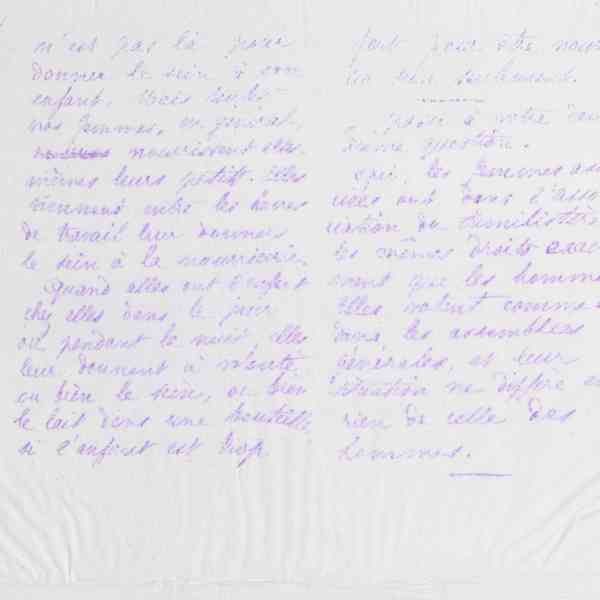 n'est pas là pour
donner le sein à son
enfant. Mais toutes
nos femmes, en général,
nourrissent elles-
mêmes leurs petits. Elles
viennent entre les heures
de travail leur donner
le sein à la nourricerie.
Quand elles ont l'enfant
chez elles dans le jour
ou pendant la nuit, elles
leur donnent à
ou bien le sein, ou bien
le lait dans une bouteille
si l'enfant est trop
fort pour être nour
au sein seulement.
passe à votre
ième question.
Oui, les femmes asso
ciées ont dans l'asso
ciation du Familistère
les mêmes droits exac
ment que les hommes
Elles votent comme
dans les assemblées
générales, et leur
situation ne diffère en
rien de celle des
hommes.